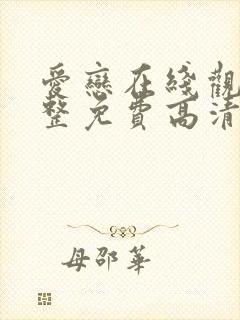 愛戀在綫觀
整免費高清
母邵華